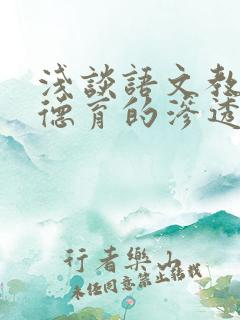 浅談語文教
德育的滲透
行者樂山
未经同意禁止转载